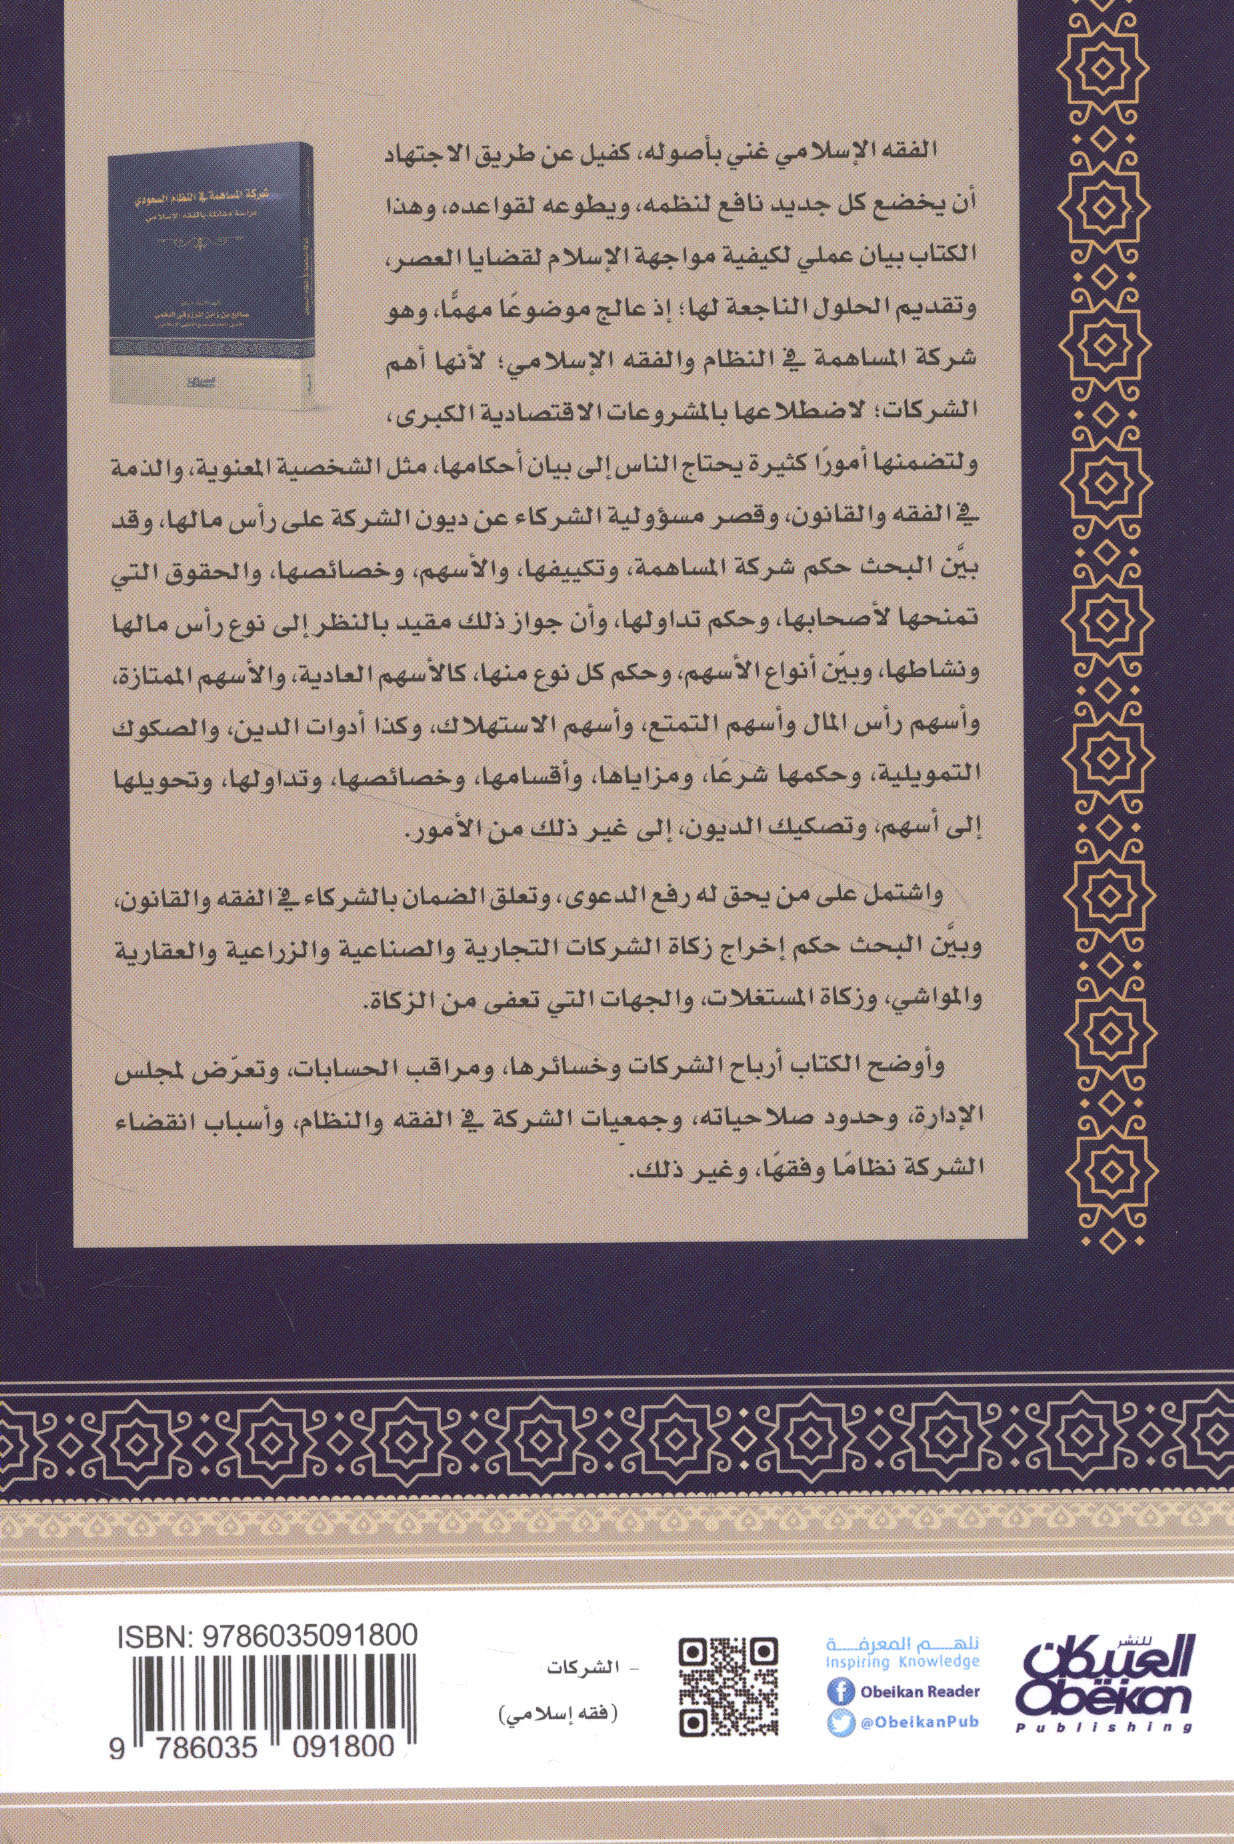 شركة المساهمة في النظام السعودي
دراسة مقابلة بالفقه الإسلامي
صالح بن زابن المرزوقي البقمي
العبيكان
Obekon
الفقه الإسلامي غني بأصوله، كفيل عن طريق الاجتهاد
أن يخضع كل جديد نافع لنظمه، ويطوعه لقواعده، وهذا
الكتاب بيان عملي لكيفية مواجهة الإسلام لقضايا العصر،
وتقديم الحلول الناجعة لها؛ إذ عالج موضوعًا مهمًّا، وهو
شركة المساهمة في النظام والفقه الإسلامي؛ لأنها أهم
الشركات؛ لاضطلاعها بالمشروعات الاقتصادية الكبرى،
ولتضمنها أمورًا كثيرة يحتاج الناس إلى بيان أحكامها، مثل الشخصية المعنوية، والذمة
في الفقه والقانون، وقصر مسؤولية الشركاء عن ديون الشركة على رأس مالها، وقد
بيَّن البحث حكم شركة المساهمة، وتكييفها، والأسهم، وخصائصها، والحقوق التي
تمنحها لأصحابها، وحكم تداولها، وأن جواز ذلك مقيد بالنظر إلى نوع رأس مالها
ونشاطها، وبيّن أنواع الأسهم، وحكم كل نوع منها، كالأسهم العادية، والأسهم الممتازة،
وأسهم رأس المال وأسهم التمتع، وأسهم الاستهلاك، وكذا أدوات الدين، والصكوك
التمويلية، وحكمها شرعًا، ومزاياها، وأقسامها، وخصائصها، وتداولها، وتحويلها
إلى أسهم، وتصكيك الديون، إلى غير ذلك من الأمور.
واشتمل على من يحق له رفع الدعوى، وتعلق الضمان بالشركاء في الفقه والقانون،
وبيَّن البحث حكم إخراج زكاة الشركات التجارية والصناعية والزراعية والعقارية
والمواشي، وزكاة المستغلات، والجهات التي تعفى من الزكاة.
وأوضح الكتاب أرباح الشركات وخسائرها، ومراقب الحسابات، وتعرّض لمجلس
الإدارة، وحدود صلاحياته، وجمعيات الشركة في الفقه والنظام، وأسباب انقضاء
الشركة نظامًا وفقهًا، وغير ذلك.
العبيكان للنشر
Obekon
Publishing
نلهم المعرفة
Inspiring Knowledge
Obeikan Reader
@ObeikanPub
- الشركات
(فقه إسلامي)
ISBN: 9786035091800
9 786035 091800